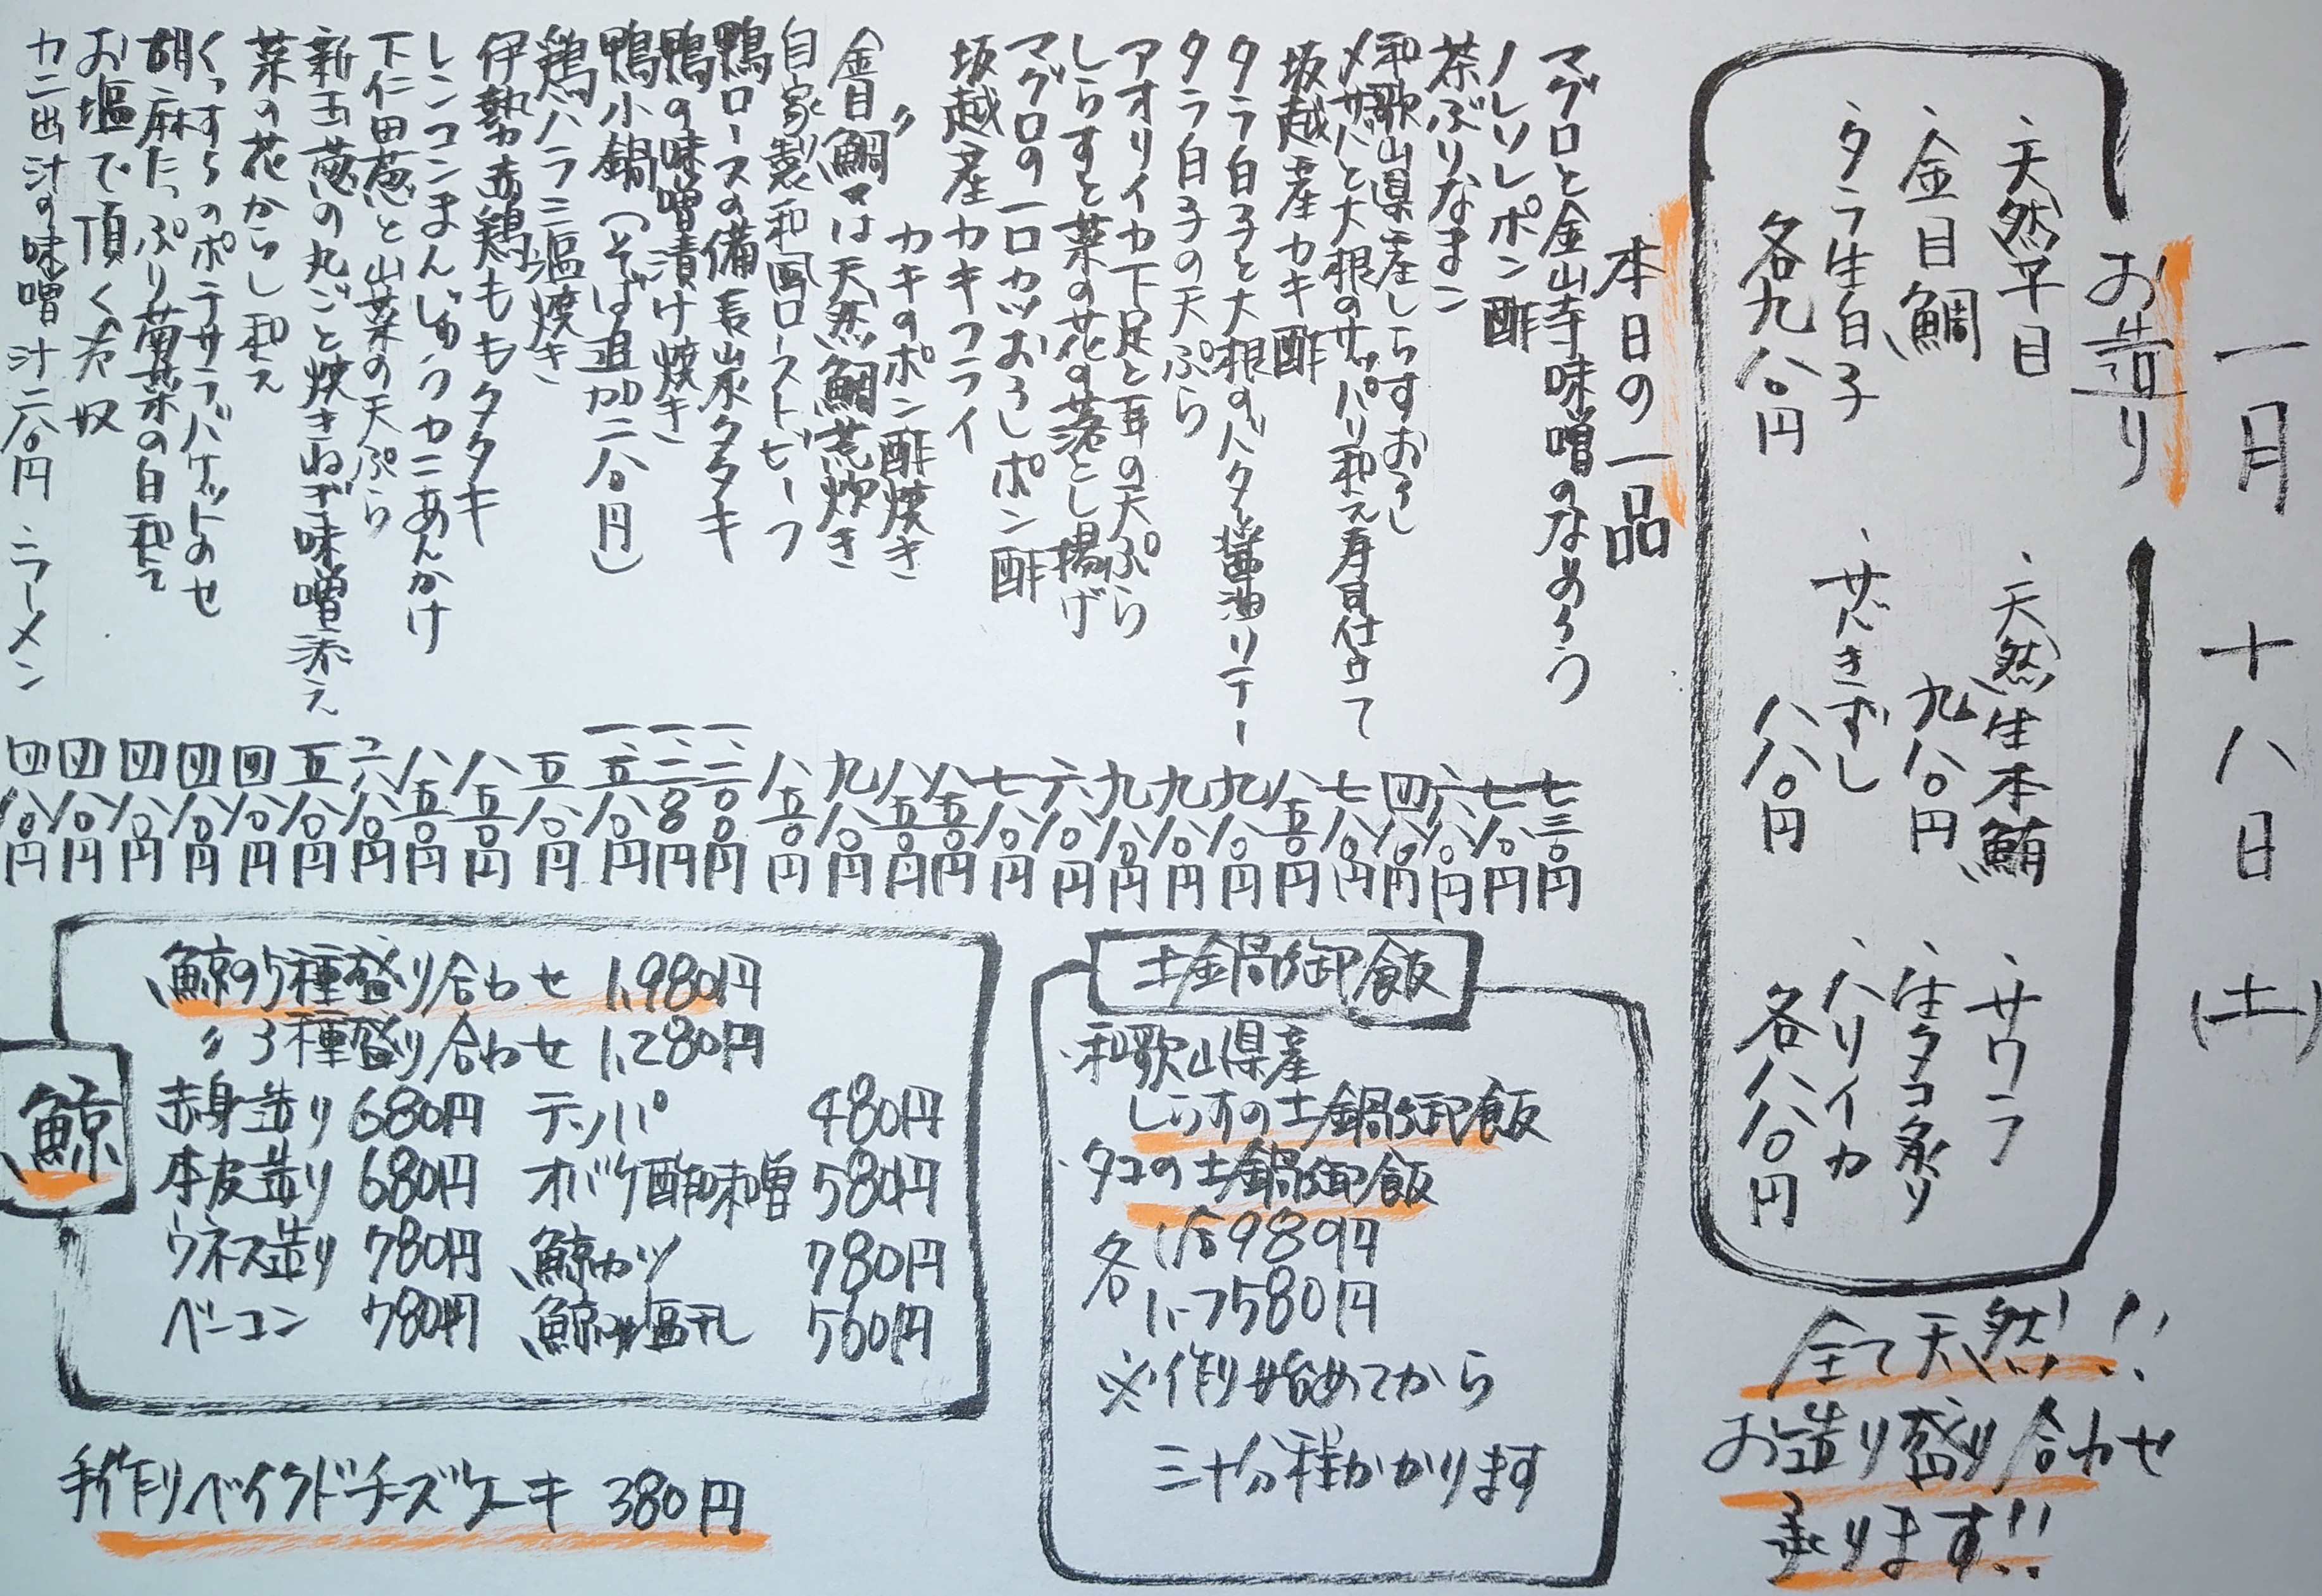 一月十八日(土)
お造り
、天然平目
、金目鯛
、タラ生白子
各九八〇円
、天然生本鮪
九八〇円
、サバきずし
八八〇円
、サワラ
、生タコ炙り
、ハリイカ
各八八〇円
全て天然!!
お造り盛り合わせ
承ります!!
本日の一品
マグロと金山寺味噌のなめろう 七三〇円
ノレソレポン酢 七八〇円
茶ぶりなまこ 六八〇円
和歌山県産しらすおろし 四八〇円
〆サバと大根のサッパリ和え寿司仕立て 七八〇円
坂越産カキ酢 八五〇円
タラ白子と大根のバター醤油ソテー 九八〇円
タラ白子の天ぷら 九八〇円
アオリイカ下足と耳の天ぷら 九八〇円
しらすと菜の花の落とし揚げ 六八〇円
マグロの一口カツおろしポン酢 七八〇円
坂越産カキフライ 八五〇円
〃 カキのポン酢焼き 八五〇円
金目鯛又は天然鯛荒炊き 九八〇円
自家製和風ローストビーフ 八五〇円
鴨ロースの備長炭タタキ 一、二〇〇円
鴨の味噌漬け焼き 一、二〇〇円
鴨小鍋(そば追加二八〇円) 一、五八〇円
鶏ハラミ塩焼き 五八〇円
伊勢赤鶏ももタタキ 八五〇円
レンコンまんじゅうカニあんかけ 八五〇円
下仁田葱と山菜の天ぷら 六八〇円
新玉葱の丸ごと焼きねぎ味噌添え 五八〇円
菜の花からし和え 四八〇円
くんすらのポテサラバケットのせ 四八〇円
胡麻たっぷり菊菜の白和え 四八〇円
お塩で頂く冷奴 四八〇円
カニ出汁の味噌汁二八〇円 、ラーメン 四八〇円
土鍋御飯
・和歌山県産
しらすの土鍋御飯
・タコの土鍋御飯
各 1合980円
1.5 1580円
※作り始めてから
三十分程かかります
鯨
鯨の5種盛り合わせ 1,980円
〃 3種盛り合わせ 1,280円
赤身造り 680円 テッパ 480円
本皮造り 680円 オバケ酢味噌 580円
ウネス造り 780円 鯨カツ 780円
ベーコン 780円 鯨の塩干し 560円
手作りベイクドチーズケーキ 380円